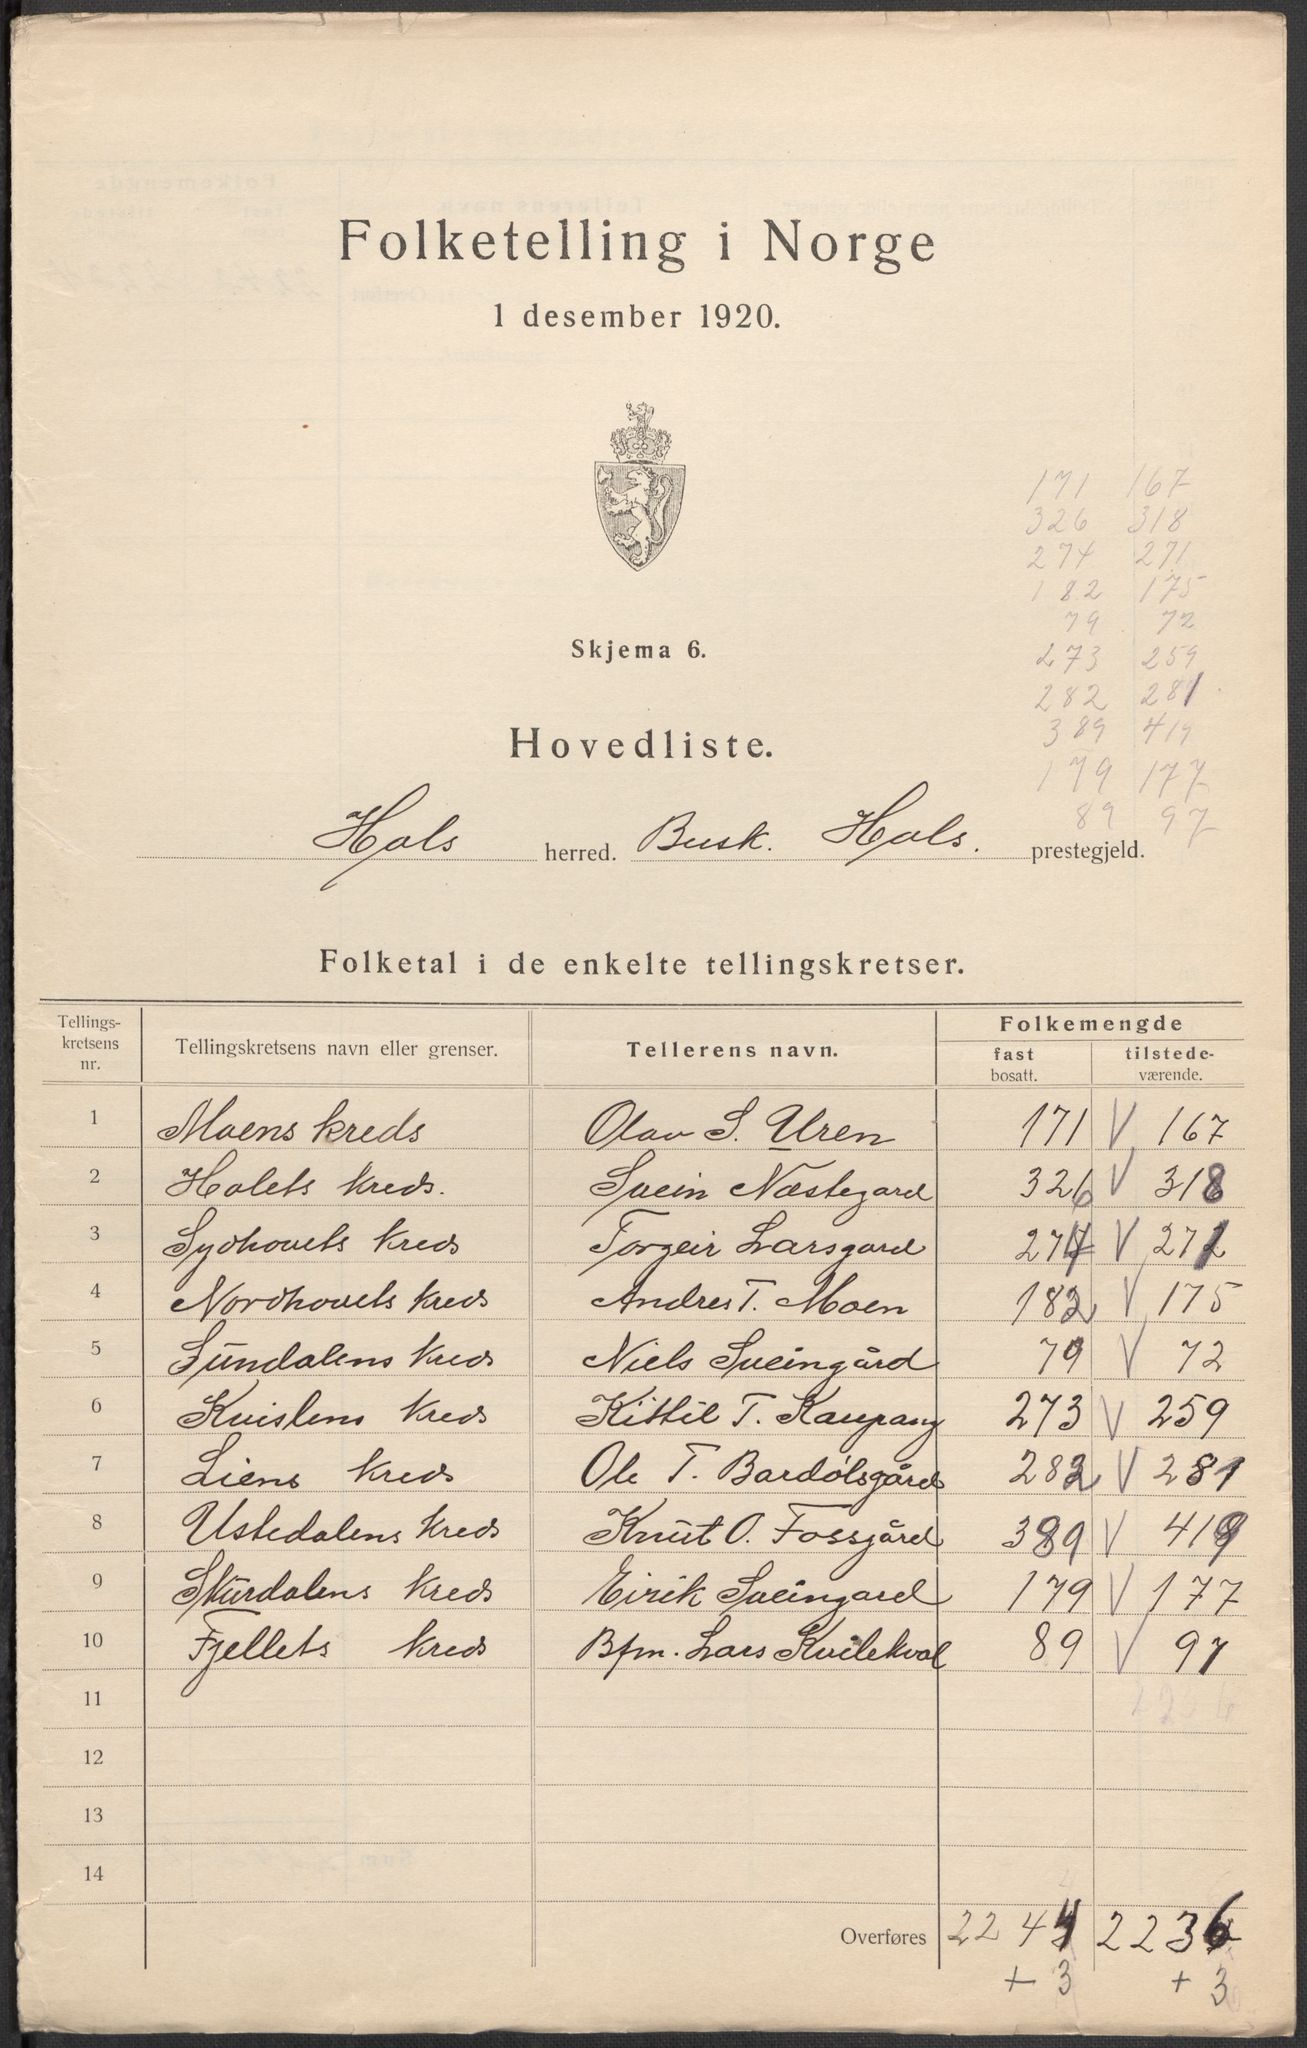 Folketelling i Norge
1 desember 1920.
171 167
326 318
274 271
182 175
79 72
273 259
282 281
389 419
179 177
89 97
Skjema 6.
Hovedliste.
Hols herred. Busk. Hols. prestegjeld.
Folketal i de enkelte tellingskretser.
Tellings-kretsens nr. Tellingskretsens navn eller grenser. Tellerens navn. Folkemengde
fast bosatt. tilstede-værende.
1 Moens kreds Olav S. Uren 171 V 167
2 Holets kreds. Svein Næstegard 326 V 318
3 Sydhovets kreds Torgeir Larsgard 274 V 271
4 Nordhovets kreds Andres T. Moen 182 V 175
5 Sundalens kreds Niels Sveingård 79 V 72
6 Kvislens kreds Kittil T. Kaupang 273 V 259
7 Liens kreds Ole T. Bardølsgård 282 V 281
8 Ustedalens kreds Knut O. Fossgård 389 V 419
9 Skurdalens kreds Eirik Sveingard 179 V 177
10 Fjellets kreds Bfm. Lars Kvilekval 89 V 97
11
12
13
14
Overføres 2244 2236
+ 3 + 3